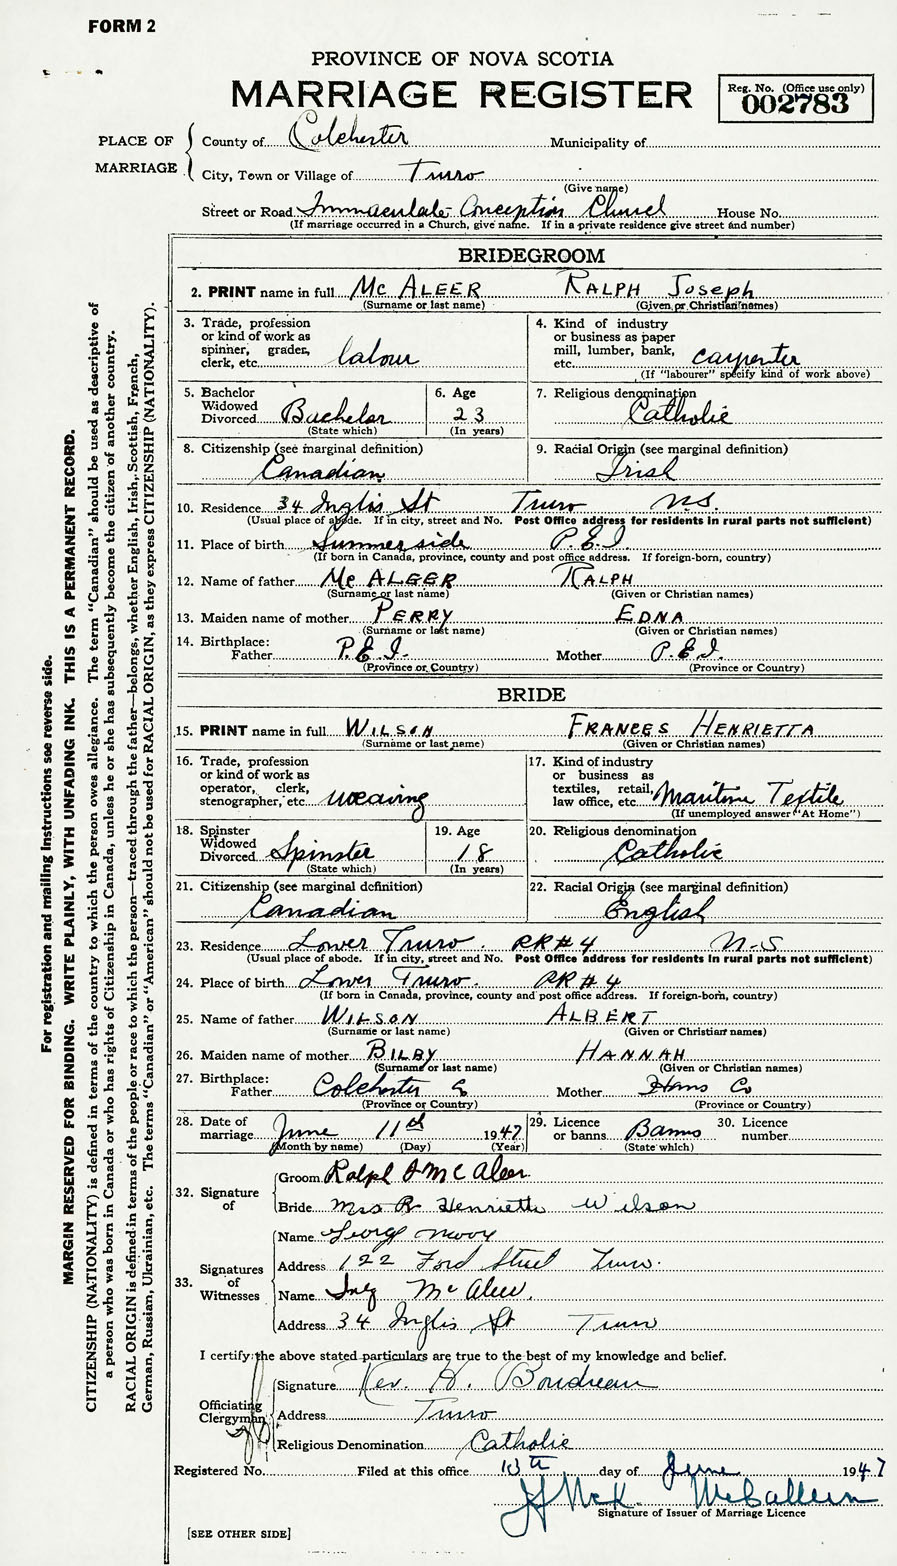 FORM 2
PROVINCE OF NOVA SCOTIA
MARRIAGE REGISTER
Reg. No. (Office use only)
002783
PLACE OF MARRIAGE
County of Colchester Municipality of
City, Town or Village of Truro
(Give name)
Street or Road Immaculate Conception Church House No.
(If marriage occurred in a Church, give name. If in a private residence give street and number)
BRIDEGROOM
2. PRINT name in full Mc ALEER RALPH JOSEPH
(Surname or last name) (Given or Christian names)
3. Trade, profession or kind of work as spinner, grader, clerk, etc. labour
4. Kind of industry or business as paper mill, lumber, bank, etc. carpenter
(If "labourer" specify kind of work above)
5. Bachelor Widowed Divorced Bachelor
(State which)
6. Age 23
(In years)
7. Religious denomination Catholic
8. Citizenship (see marginal definition) Canadian
9. Racial Origin (see marginal definition) Irish
10. Residence 34 Inglis St Truro N.S.
(Usual place of abode. If in city, street and No. Post Office address for residents in rural parts not sufficient)
11. Place of birth Summerside P.E.I
(If born in Canada, province, county and post office address. If foreign-born, country)
12. Name of father Mc ALEER RALPH
(Surname or last name) (Given or Christian names)
13. Maiden name of mother PERRY EDNA
(Surname or last name) (Given or Christian names)
14. Birthplace:
Father P.E.I. Mother P.E.I.
(Province or Country) (Province or Country)
BRIDE
15. PRINT name in full WILSON FRANCES HENRIETTA
(Surname or last name) (Given or Christian names)
16. Trade, profession or kind of work as operator, clerk, stenographer, etc. weaving
17. Kind of industry or business as textiles, retail, law office, etc. Maritime Textile
(If unemployed answer "At Home")
18. Spinster Widowed Divorced Spinster
(State which)
19. Age 18
(In years)
20. Religious denomination Catholic
21. Citizenship (see marginal definition) Canadian
22. Racial Origin (see marginal definition) English
23. Residence Lower Truro. RR#4 N-S
(Usual place of abode. If in city, street and No. Post Office address for residents in rural parts not sufficient)
24. Place of birth Lower Truro. RR#4
(If born in Canada, province, county and post office address. If foreign-born, country)
25. Name of father WILSON ALBERT
(Surname or last name) (Given or Christian names)
26. Maiden name of mother BILBY HANNAH
(Surname or last name) (Given or Christian names)
27. Birthplace:
Father Colchester Co Mother Hans Co
(Province or Country) (Province or Country)
28. Date of marriage June 11th 1947
(Month by name) (Day) (Year)
29. Licence or banns Banns
(State which)
30. Licence number
32. Signature of
Groom Ralph J McAleer
Bride Henrietta Wilson
33. Signatures of Witnesses
Name George
Address 122 Ford Street Truro.
Name Inez McAleer.
Address 34 Inglis St Truro
I certify the above stated particulars are true to the best of my knowledge and belief.
Officiating Clergyman
Signature Rev. H. Boudreau
Address Truro
Religious Denomination Catholic
Registered No. Filed at this office 13th day of June 1947
Signature of Issuer of Marriage Licence
[SEE OTHER SIDE]
For registration and mailing instructions see reverse side.
MARGIN RESERVED FOR BINDING. WRITE PLAINLY, WITH UNFADING INK. THIS IS A PERMANENT RECORD.
CITIZENSHIP (NATIONALITY) is defined in terms of the country to which the person owes allegiance. The term "Canadian" should be used as descriptive of
a person who was born in Canada or who has rights of Citizenship in Canada, unless he or she has subsequently become the citizen of another country.
RACIAL ORIGIN is defined in terms of the people or race to which the person—traced through the father—belongs, whether English, Irish, Scottish, French,
German, Russian, Ukrainian, etc. The terms "Canadian" or "American" should not be used for RACIAL ORIGIN, as they express CITIZENSHIP (NATIONALITY).